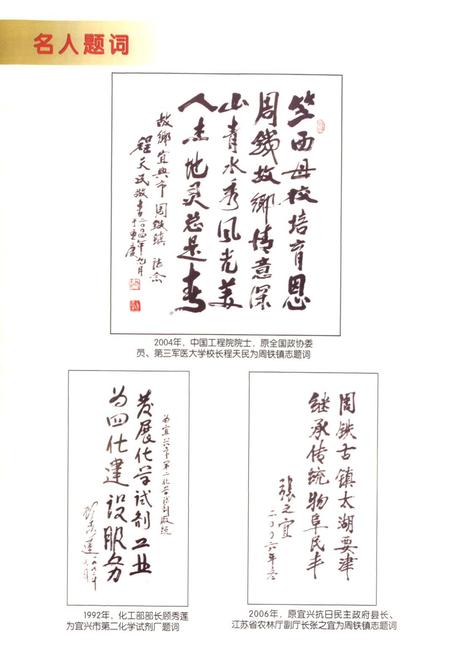 名人题词
竺西母校培育恩
周铁故乡情意深
山青水秀风光美
人杰地灵总是春
故乡宜兴市周铁镇 誌念
程天民敬書二〇〇四年九月
于重庆
2004年，中国工程院院士，原全国政协委
员、第三军医大学校长程天民为周铁镇志题词
为宜兴市第二化学试剂厂题
发展化学试剂工业
为四化建设服务
顾秀莲
1992年，化工部部长顾秀莲
为宜兴市第二化学试剂厂题词
周铁古镇太湖要津
继承传统物阜民丰
張之宜
二〇〇六年
2006年，原宜兴抗日民主政府县长、
江苏省农林厅副厅长张之宜为周铁镇志题词